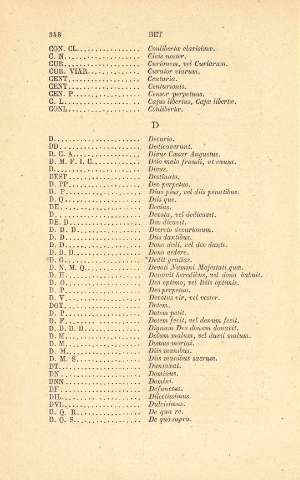 348 DET
CON. CL. Conlibertæ clarissimæ.
C. N. Civis noster.
CUR. Curionem, vel Curiarum.
CUR. VIAR. Curator viarum.
CENT. Centuria.
CENT. Centurionis.
CEN. P. Censor perpetuus.
C. L. Cajus libertus, Cajæ libertæ.
CONL. Conlibertæ.
D
D. Decurio.
DD. Dedicaverunt.
D. C. A. Divus Cæsar Augustus.
D. M. F. I. C. Dolo malo fraudi, ut causæ.
D. Divus.
DEST. Destinato.
D. PP. Deo perpetuo.
D. P. Divo pius, vel diis penatibus.
D. Q. Diis que.
DE. Decius.
D. Devota, vel dedicavit.
DE. D. Deo dicavit.
D. D. D. Decreto decurionum.
D. D. Diis dantibus.
D. D. Dono dedi, vel deo dante.
D. D. D. Dono dedere.
D. G. Dedit gratias.
D. N. M. Q. Devoti Numini Majestati quæ.
D. H. Donavit heredibus, vel domi habuit.
D. O. Deo optimo, vel Diis optimis.
D. P. Deo perpetuo.
D. V. Devotus vir, vel vester.
DOT. Dotem.
D. P. Dotem petit.
D. F. Dotem fecit, vel donum fecit.
D. D. D. D. Dignum Deo donum donavit.
D. M. Dolum malum, vel duxit malum.
D. M. Domus mortui.
D. M. Diis manibus.
D. M. S. Diis manibus sacrum.
DT. Dumtaxat.
DN. Dominus.
DNN. Domini.
DF. Defunctus.
DIL. Dilectissimus.
DVL. Dulcissimus.
D. Q. R. De qua re.
D. Q. S. De quo supra.